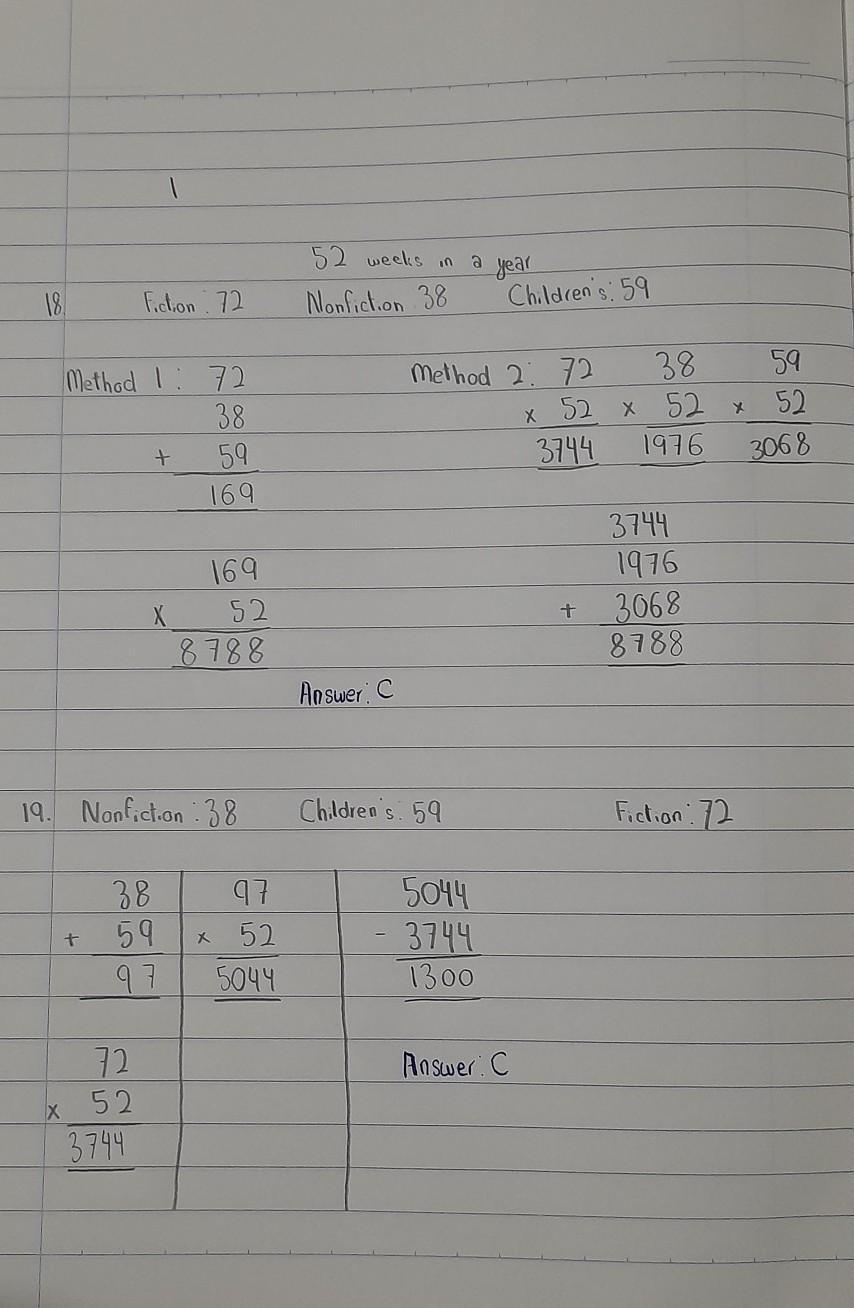 52 weeks in a year
18. Fiction: 72 Nonfiction 38 Children's: 59
Method 1: 72 Method 2: 72 38 59
38 x 52 x 52 x 52
+ 59 3744 1976 3068
169
3744
169 1976
x 52 + 3068
8788 8788
Answer: C
19. Nonfiction: 38 Children's: 59 Fiction: 72
38 97 5044
+ 59 x 52 - 3744
97 5044 1300
72 Answer: C
x 52
3744